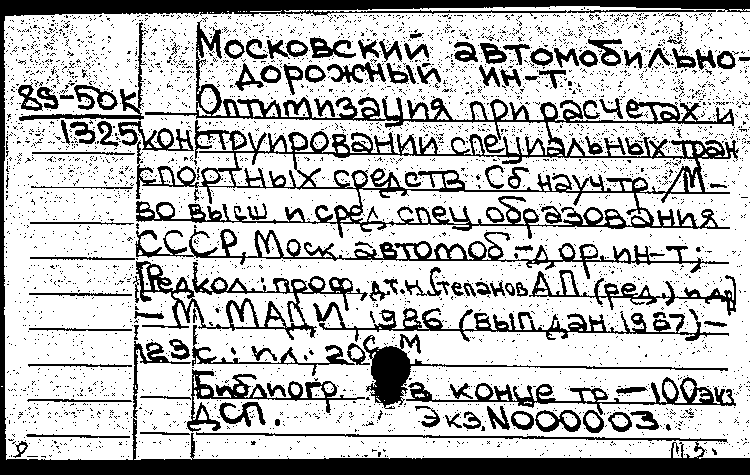 Московский автомобильно-
дорожный ин-т.
89-50к Оптимизация при расчетах и
1325 конструировании специальных тран
спортных средств : Сб. науч. тр. / М-
во высш. и сред. спец. образования
СССР, Моск. автомоб.-дор. ин-т ;
[Редкол.: проф., д.т.н. Степанов А.П. (ред.) и др]
— М.: МАДИ, 1986 (вып. дан. 1987) —
129 с. : ил.; 20 см.
Библиогр. в конце тр. — 100 экз
ДСП. Экз. N000003.